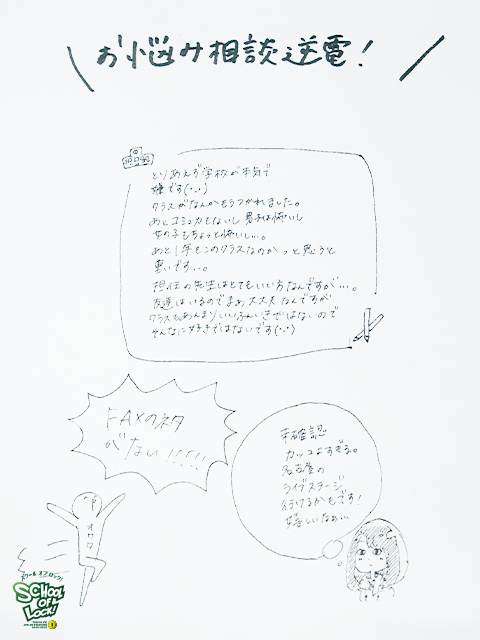 お悩み相談送電!
とりあえず学校が本気で
嫌です(・_・)
クラスがなんかもうつかれました。
あとコミュ力もないし男子は怖いし
女の子もちょっと怖いし…。
あと1年もこのクラスなのかっと思うと
悪いです…。
担任の先生はとてもいい方なんですが…。
友達はいるのでまあ大丈夫なんですが
クラスもあんまりいいふんいきではないので
そんなに好きではないです(・_・)
FAXのネタ
がない!!!!!
未確認
カッコよすぎる。
名古屋の
ライブステージ
行けるかもです!
嬉しいなぁ…
スクール オブ ロック!
SCHOOL
OF
LOCK!